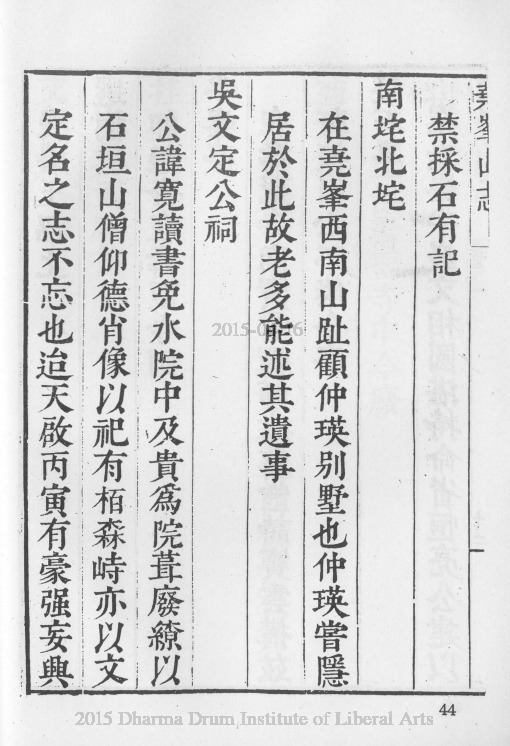 堯峯山志
禁採石有記
南垞北垞
在堯峯西南山趾顧仲瑛別墅也仲瑛嘗隱
居於此故老多能述其遺事
吳文定公祠
公諱寬讀書免水院中及貴爲院葺廢繚以
石垣山僧仰德肖像以祀有栢森峙亦以文
定名之志不忘也迨天啟丙寅有豪强妄興
44
2015 Dharma Drum Institute of Liberal Arts